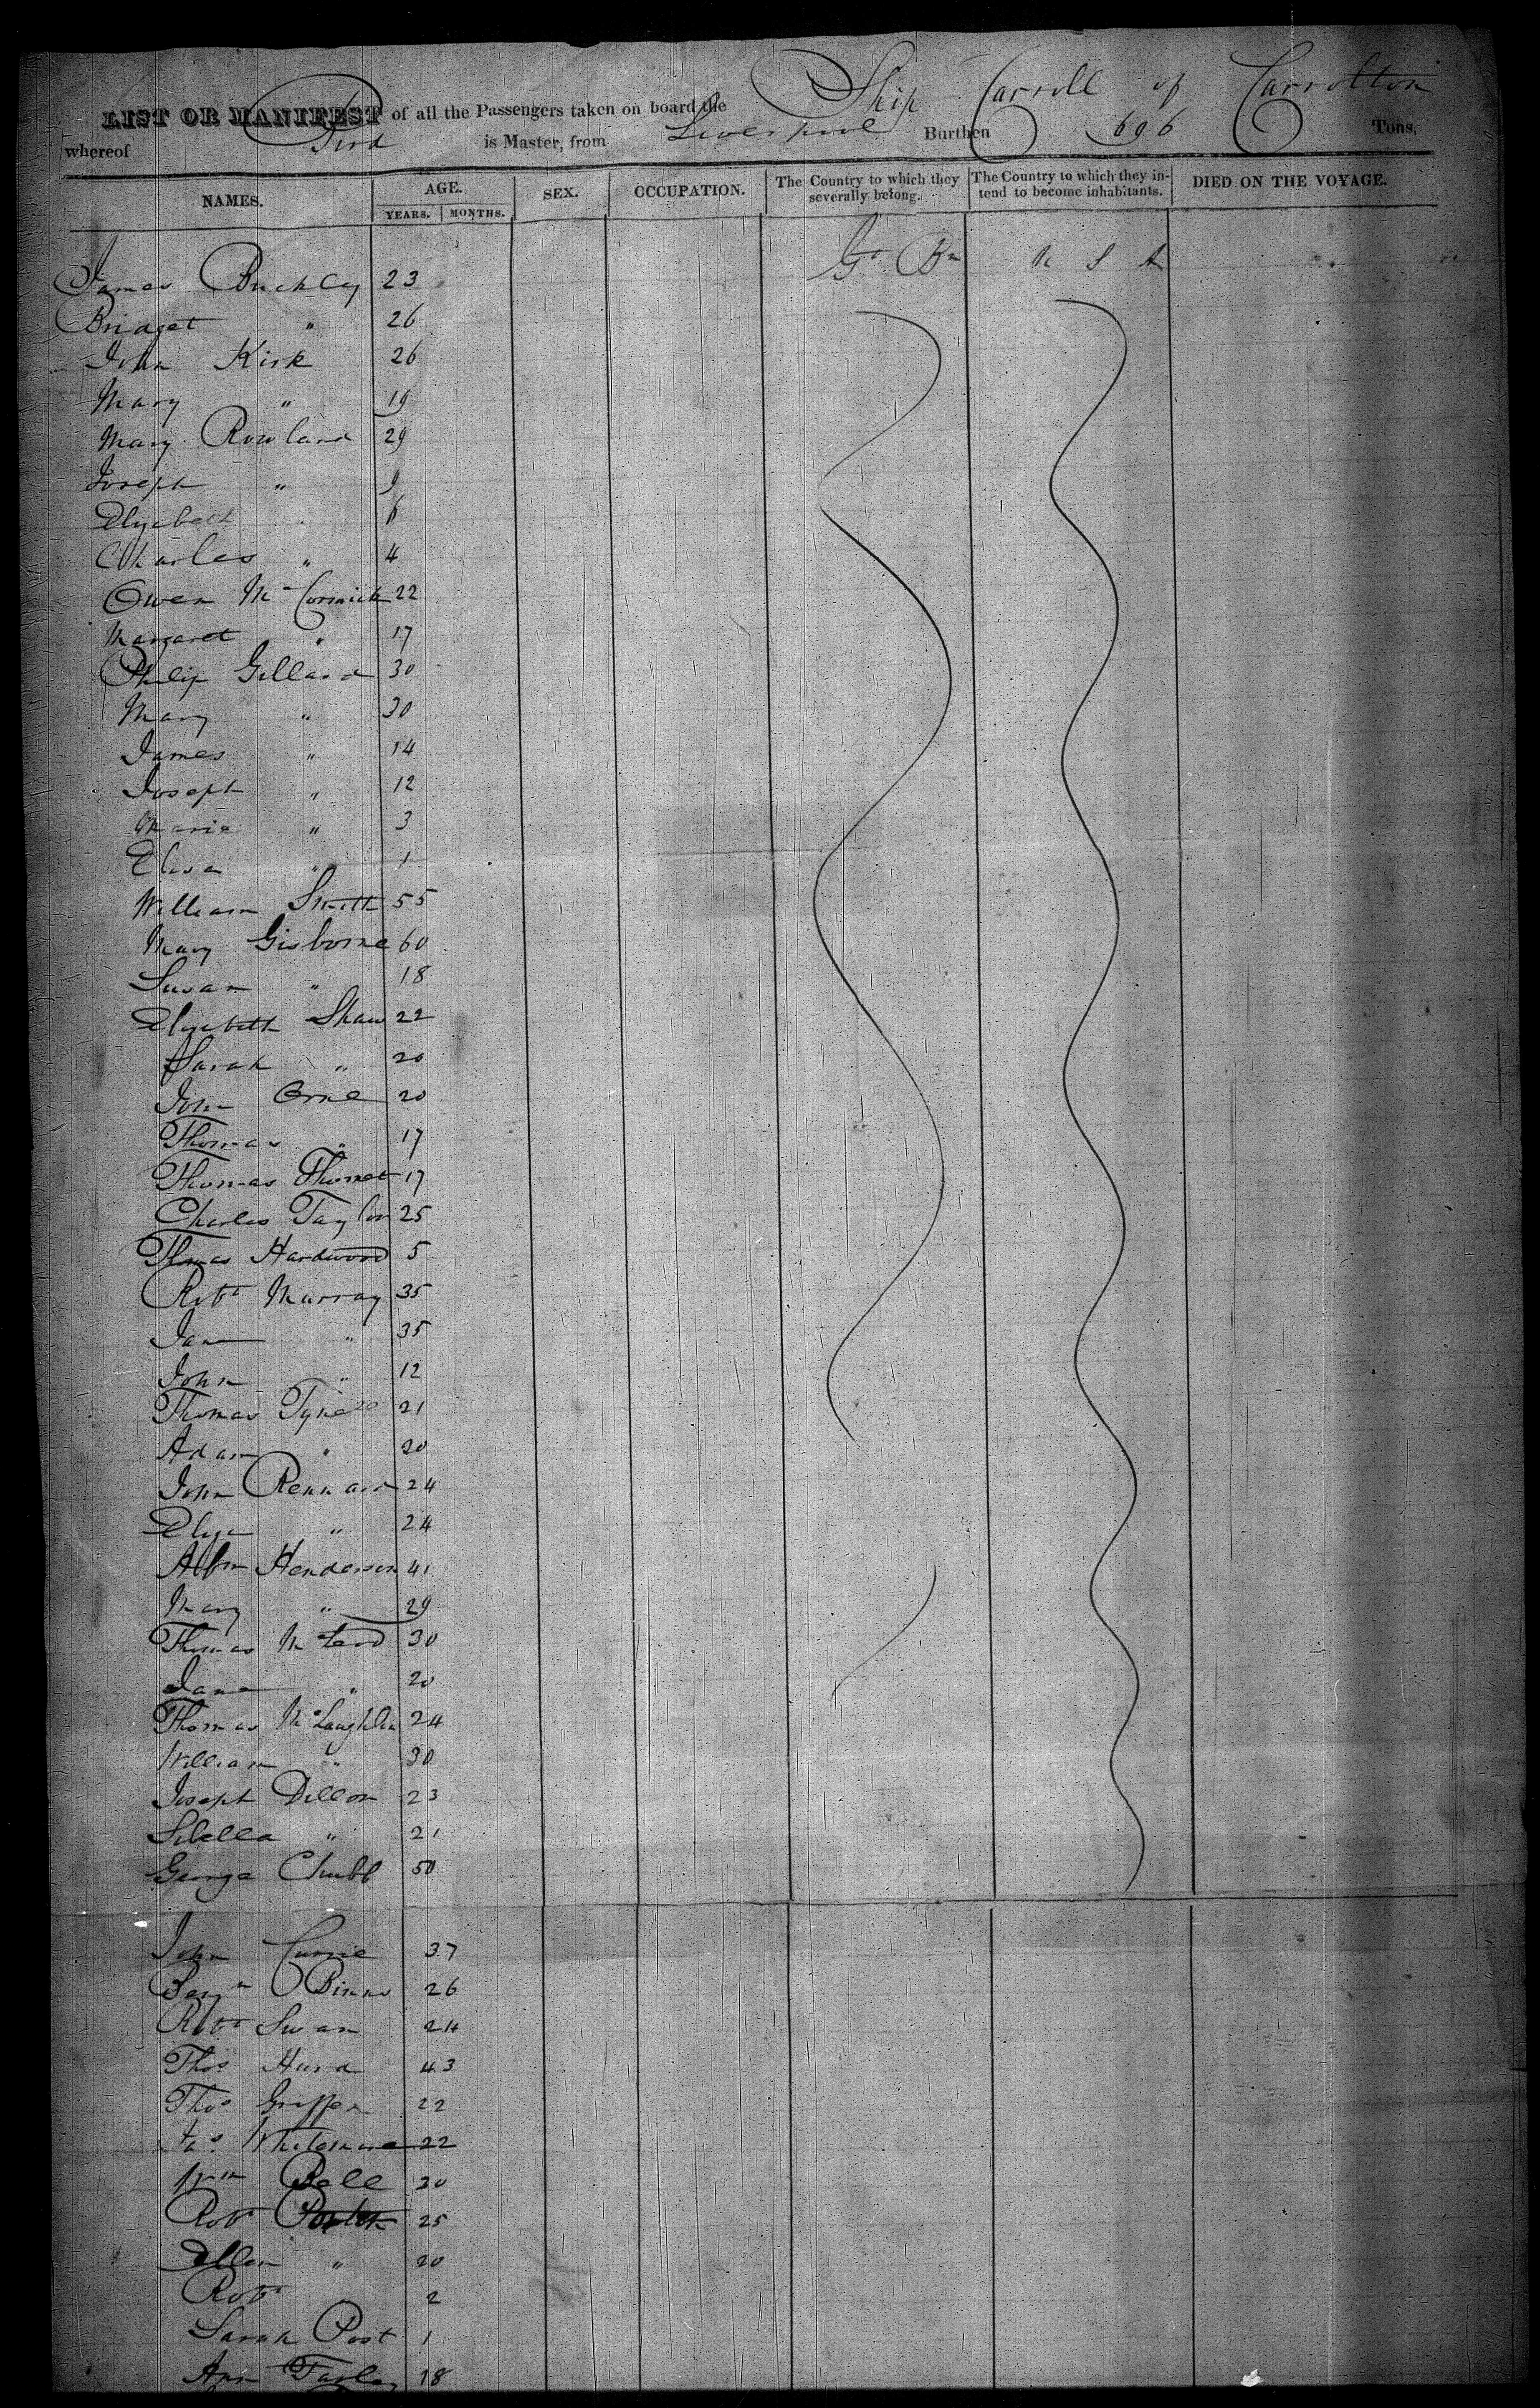 Ship Carroll of Carrolton
LIST OR MANIFEST of all the Passengers taken on board the
whereof Bird is Master, from Liverpool Burthen 696 Tons.
NAMES. AGE. SEX. OCCUPATION. The Country to which they severally belong. The Country to which they intend to become inhabitants. DIED ON THE VOYAGE.
YEARS. MONTHS.
James Buckley 23 Gt Bn U S A
Bridget " 26
John Kirk 26
Mary " 19
Mary Rowland 29
Joseph " 9
Elyzabeth " 6
Charles " 4
Owen McCormick 22
Margaret " 17
Philip Gillard 30
Mary " 30
James " 14
Joseph " 12
Maria " 3
Elisa " 1
William Smith 55
Mary Gisborne 60
Susan " 18
Elyzabeth Shaw 22
Sarah " 20
John Orne 20
Thomas " 17
Thomas 17
Charles Taylor 25
Thomas Hardwood 5
Robt Murray 35
Jane " 35
John " 12
Thomas 21
Adam " 20
John Rennard 24
Elyza " 24
Henderson 41
Mary " 29
Thomas 30
Jane " 20
Thomas McLaughlin 24
William " 30
Joseph Dillon 23
Sibella " 21
George Chubb 50
John Currie 37
Benjn Binns 26
Robt Swan 24
Thos Hurd 43
Thos Griffen 22
Jas 22
Wm Bell 30
Robt 25
Ellen " 20
Robt 2
Sarah Post 1
Ann 18